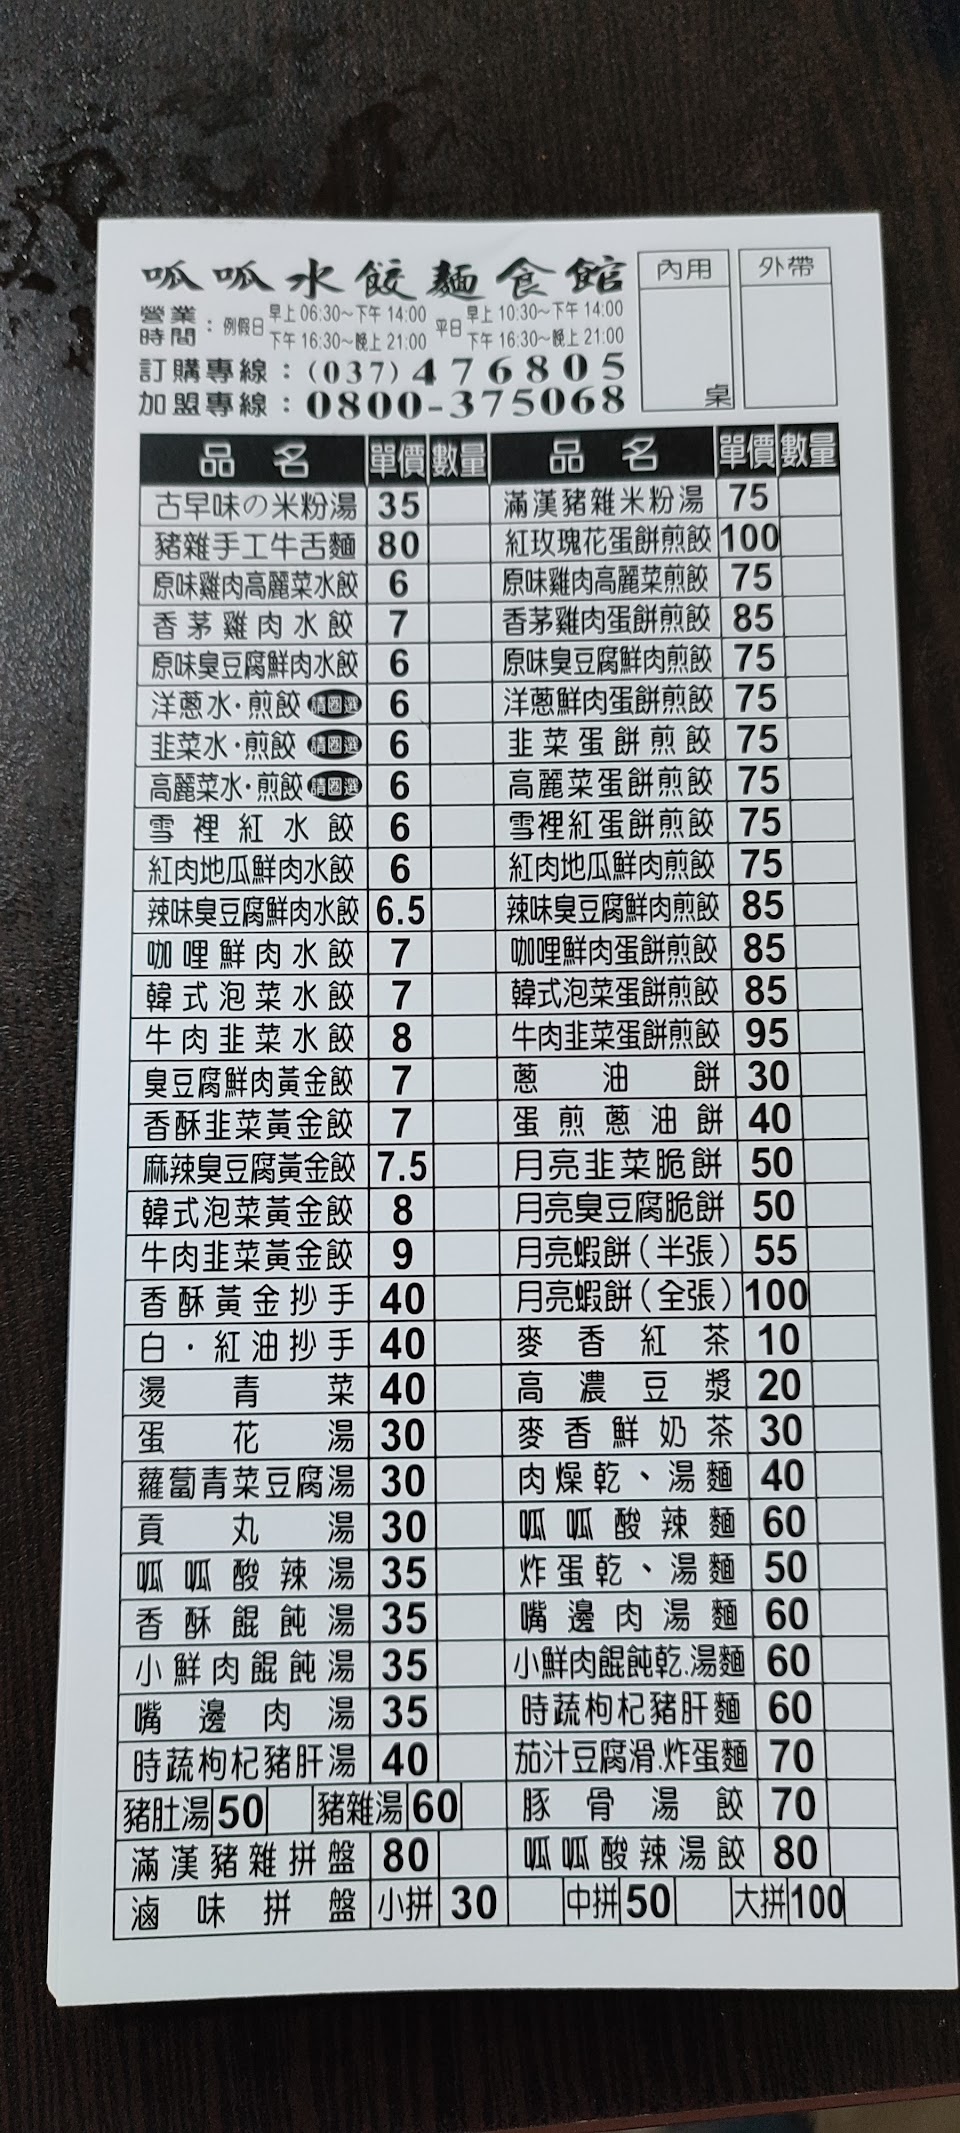 呱呱水餃麵食館
內用 外帶
營業時間：例假日 早上 06:30～下午 14:00 平日 早上 10:30～下午 14:00
下午 16:30～晚上 21:00 下午 16:30～晚上 21:00
訂購專線：(037)476805
加盟專線：0800-375068
桌
品名 單價 數量 品名 單價 數量
古早味の米粉湯 35 滿漢豬雜米粉湯 75
豬雜手工牛舌麵 80 紅玫瑰花蛋餅煎餃 100
原味雞肉高麗菜水餃 6 原味雞肉高麗菜煎餃 75
香茅雞肉水餃 7 香茅雞肉蛋餅煎餃 85
原味臭豆腐鮮肉水餃 6 原味臭豆腐鮮肉煎餃 75
洋蔥水·煎餃 請圈選 6 洋蔥鮮肉蛋餅煎餃 75
韭菜水·煎餃 請圈選 6 韭菜蛋餅煎餃 75
高麗菜水·煎餃 請圈選 6 高麗菜蛋餅煎餃 75
雪裡紅水餃 6 雪裡紅蛋餅煎餃 75
紅肉地瓜鮮肉水餃 6 紅肉地瓜鮮肉煎餃 75
辣味臭豆腐鮮肉水餃 6.5 辣味臭豆腐鮮肉煎餃 85
咖哩鮮肉水餃 7 咖哩鮮肉蛋餅煎餃 85
韓式泡菜水餃 7 韓式泡菜蛋餅煎餃 85
牛肉韭菜水餃 8 牛肉韭菜蛋餅煎餃 95
臭豆腐鮮肉黃金餃 7 蔥油餅 30
香酥韭菜黃金餃 7 蛋煎蔥油餅 40
麻辣臭豆腐黃金餃 7.5 月亮韭菜脆餅 50
韓式泡菜黃金餃 8 月亮臭豆腐脆餅 50
牛肉韭菜黃金餃 9 月亮蝦餅(半張) 55
香酥黃金抄手 40 月亮蝦餅(全張) 100
白·紅油抄手 40 麥香紅茶 10
燙青菜 40 高濃豆漿 20
蛋花湯 30 麥香鮮奶茶 30
蘿蔔青菜豆腐湯 30 肉燥乾、湯麵 40
貢丸湯 30 呱呱酸辣麵 60
呱呱酸辣湯 35 炸蛋乾、湯麵 50
香酥餛飩湯 35 嘴邊肉湯麵 60
小鮮肉餛飩湯 35 小鮮肉餛飩乾.湯麵 60
嘴邊肉湯 35 時蔬枸杞豬肝麵 60
時蔬枸杞豬肝湯 40 茄汁豆腐滑.炸蛋麵 70
豬肚湯 50 豬雜湯 60 豚骨湯餃 70
滿漢豬雜拼盤 80 呱呱酸辣湯餃 80
滷味拼盤 小拼 30 中拼 50 大拼 100